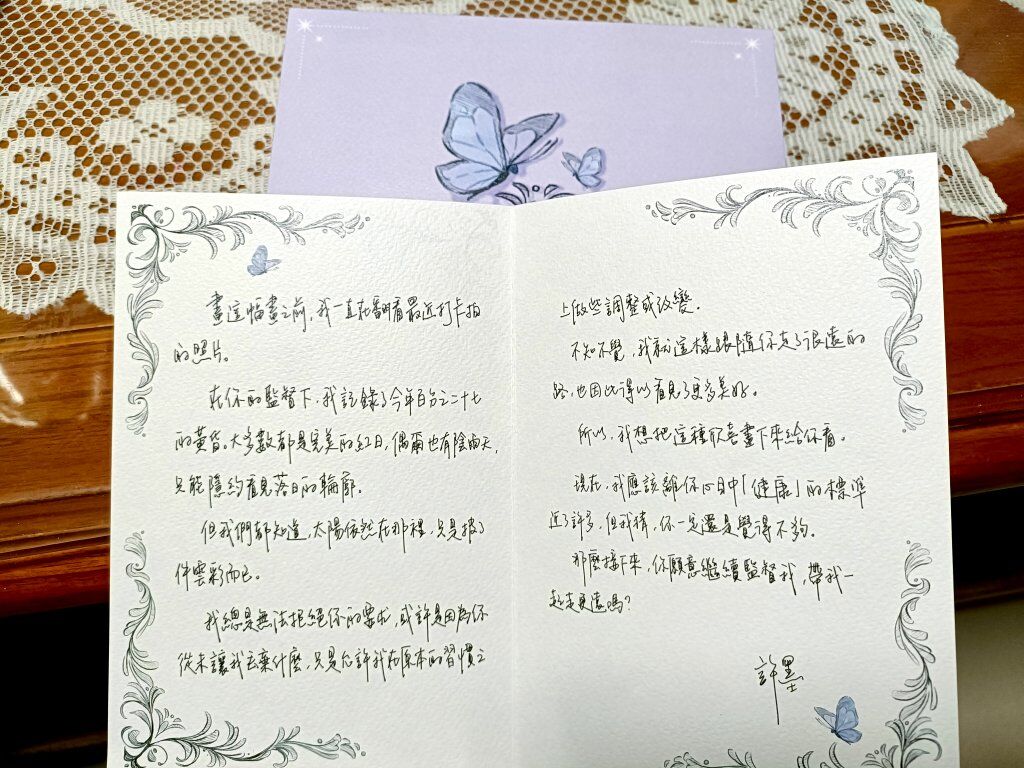 畫這幅畫之前，我一直在翻看最近打卡拍
的照片。
在你的監督下，我記錄了今年百分之二十七
的黃昏。大多數都是完美的紅日，偶爾也有陰雨天，
只能隱約看見落日的輪廓。
但我們都知道，太陽依然在那裡，只是披了
件雲彩而已。
我總是無法拒絕你的要求，或許是因為你
從未讓我丟棄什麼，只是允許我在原本的習慣之
上做些調整或改變。
不知不覺，我就這樣跟隨你走了很遠的
路，也因此得以看見了更多美好。
所以，我想把這種欣喜畫下來給你看。
現在，我應該離你心目中「健康」的標準
近了許多，但我猜，你一定還是覺得不夠。
那麼接下來，你願意繼續監督我，帶我一
起走更遠嗎？
許墨